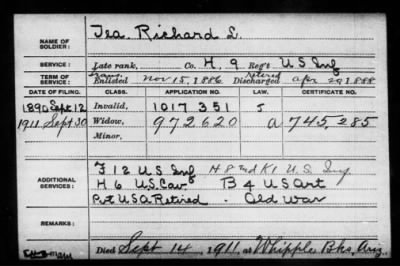 NAME OF SOLDIER: Tea, Richard L.
SERVICE: Late rank, Co. H, 9 Reg't U S Inf
TERM OF SERVICE: Trans. Enlisted Nov 15, 1886 Retired Discharged Apr 29 1888
DATE OF FILING. CLASS. APPLICATION NO. LAW. CERTIFICATE NO.
1890 Sept 12 Invalid, 1017351 J
1911 Sept 30 Widow, 972620 a 745,285
Minor,
ADDITIONAL SERVICES: F 12 U S Inf H 8 and K 1 U.S. Inf
H 6 U.S. Cav B 4 US Art
Pvt USA Retired . Old War
REMARKS:
Died Sept 14, 1911, at Whipple Bks, Ariz.